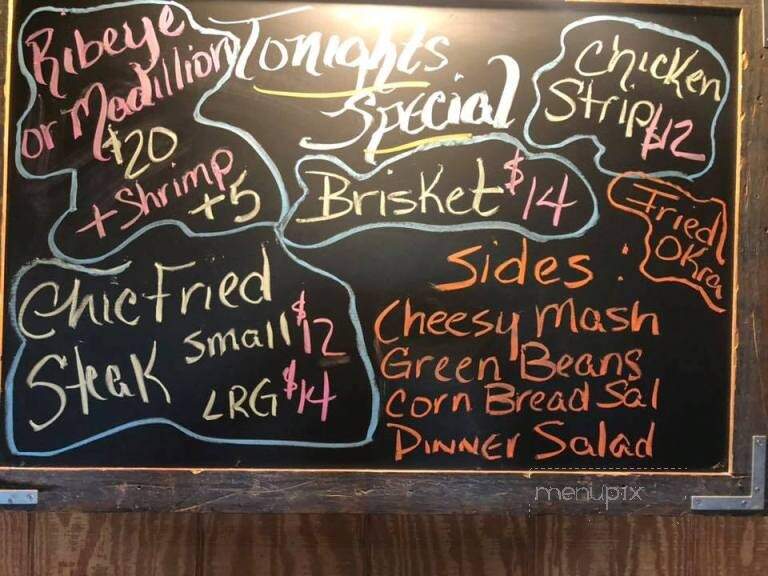 Tonights
Special
Ribeye
or Madillion
$20
+Shrimp
+5
Chicken
Strip $12
Brisket $14
Fried
Okra
Chic Fried
Steak
Small $12
LRG $14
Sides:
Cheesy Mash
Green Beans
Corn Bread Sal
Dinner Salad
menupix